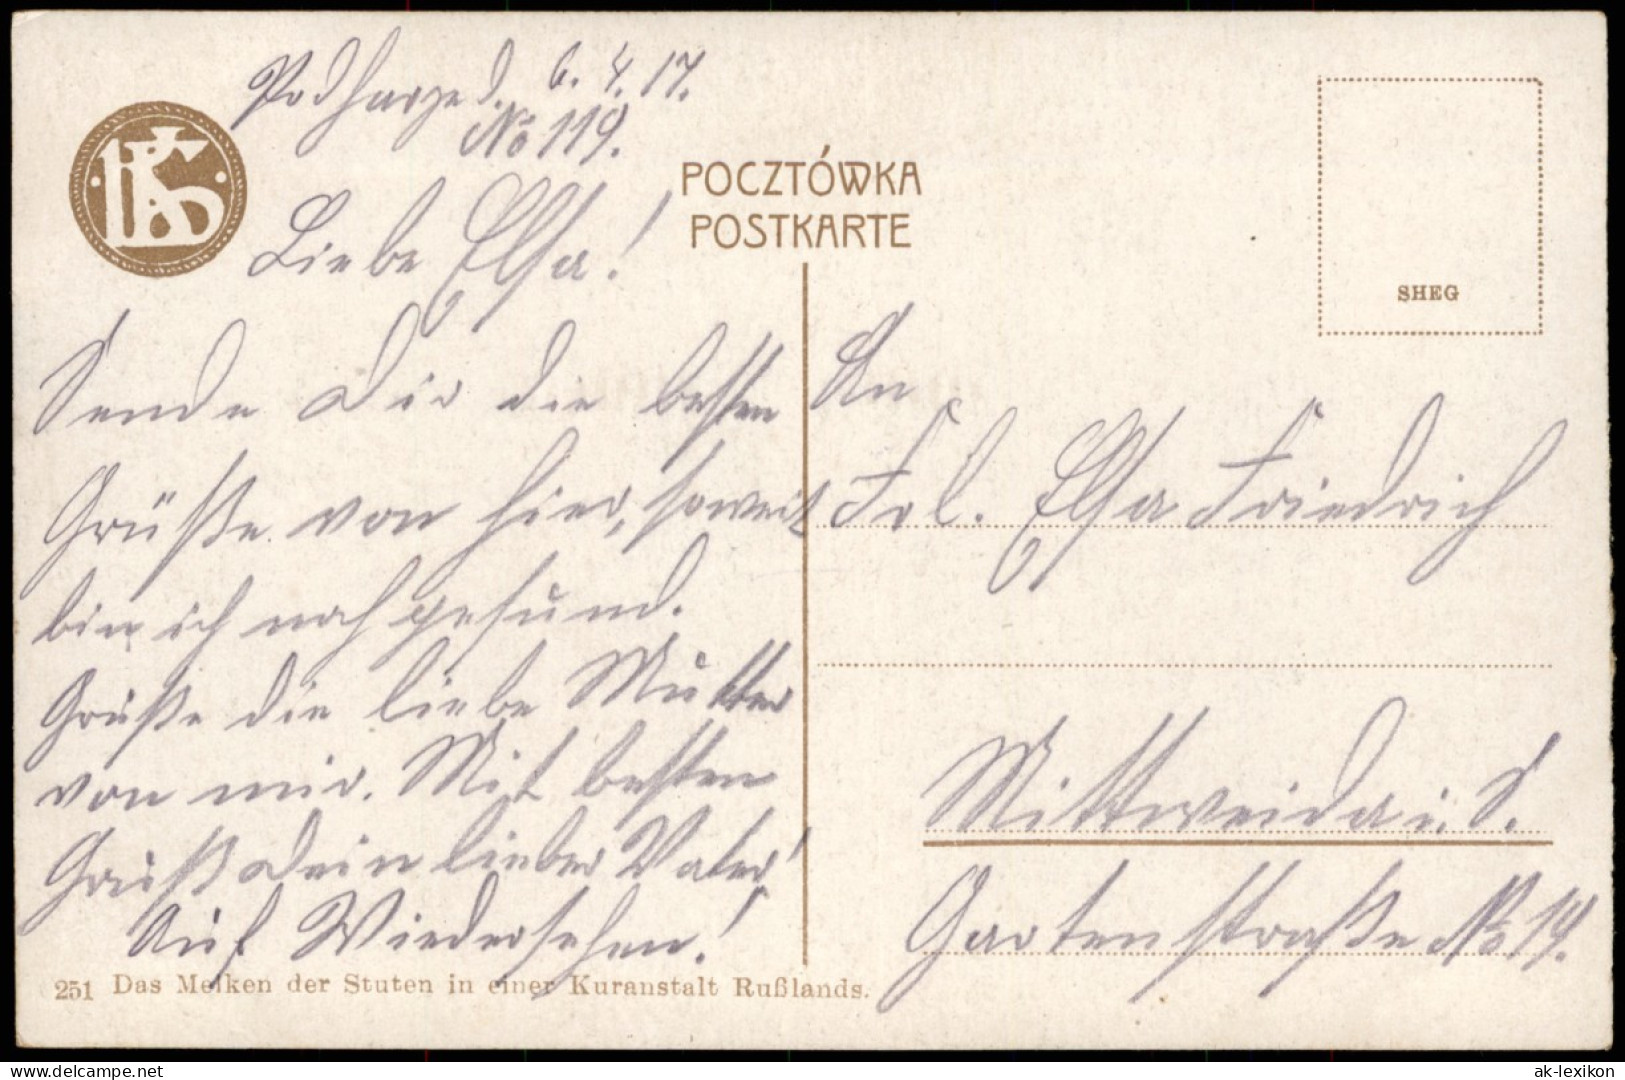 Podhayze d. 6.4.17.
No 119.
POCZTÓWKA
POSTKARTE
SHEG
Liebe Elsa!
Sende Dir die besten
Grüße von hier, soweit
bin ich noch gesund.
Grüße die liebe Mutter
von mir. Mit besten
Gruß Dein lieber Vater!
Auf Wiedersehen!
An
Frl. Elsa Friedrich
Mittweida i. S.
Gartenstraße No 19.
251 Das Melken der Stuten in einer Kuranstalt Rußlands.
delcampe.net
ak-lexikon